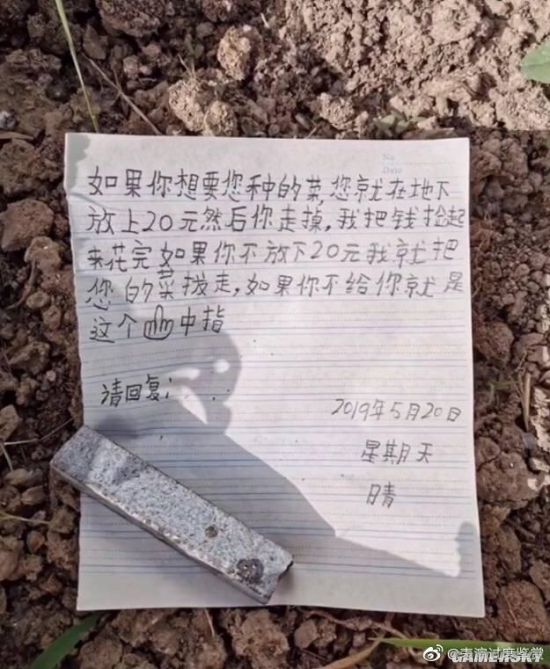 No
Date
如果你想要您种的菜,您就在地下
放上20元然后你走掉,我把钱捡起
来花完如果你不放下20元我就把
您的菜拨走,如果你不给你就是
这个中指
请回复:
2019年5月20日
星期天
晴
@表演过度鉴赏
GAMERSKY